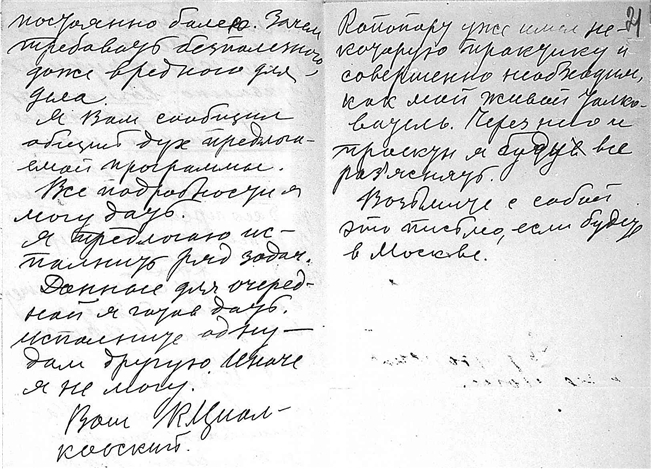 постоянно болею. Зачем
требовать бесполезного,
даже вредного для
дела
Я Вам сообщил
общий дух предлога-
емой программы.
Все подробности я
могу дать
Я предлогаю ис-
полнить ряд задач.
Данные для очеред-
ной я готов дать.
Исполните одну —
дам другую. Иначе
я не могу.
Ваш К Циол-
ковский.
21
Рапопорт уже имел не-
которую практику и
совершенно необходим,
как мой живой толко-
ватель. Через него и
я буду все
раз'яснять.
Возьмите с собой
это письмо, если будете
в Москве.